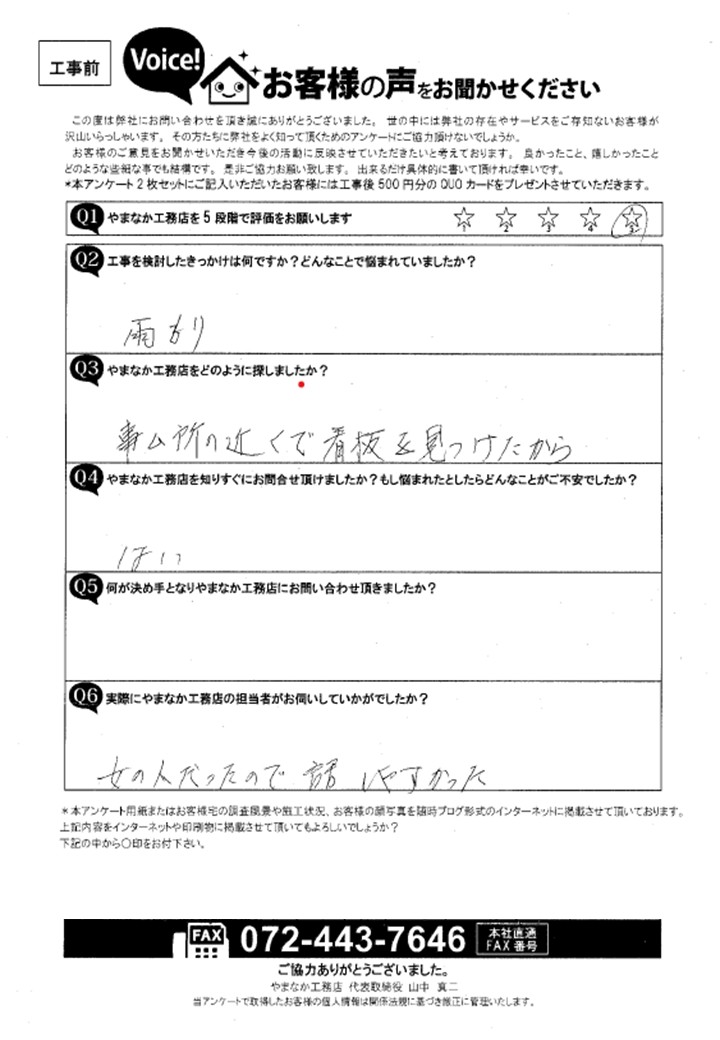 工事前
Voice!
お客様の声をお聞かせください
この度は弊社にお問い合わせを頂き誠にありがとうございました。 世の中には弊社の存在やサービスをご存知ないお客様が
沢山いらっしゃいます。 その方たちに弊社をよく知って頂くためのアンケートにご協力頂けないでしょうか。
お客様のご意見をお聞かせいただき今後の活動に反映させていただきたいと考えております。 良かったこと、嬉しかったこと
どのような些細な事でも結構です。 是非ご協力お願い致します。 出来るだけ具体的に書いて頂ければ幸いです。
*本アンケート2枚セットにご記入いただいたお客様には工事後500円分のQUOカードをプレゼントさせていただきます。
Q1 やまなか工務店を5段階で評価をお願いします ☆1 ☆2 ☆3 ☆4 ☆5
Q2 工事を検討したきっかけは何ですか?どんなことで悩まれていましたか?
雨もり
Q3 やまなか工務店をどのように探しましたか?
事ム所の近くで看板を見つけたから
Q4 やまなか工務店を知りすぐにお問合せ頂けましたか?もし悩まれたとしたらどんなことがご不安でしたか?
はい
Q5 何が決め手となりやまなか工務店にお問い合わせ頂きましたか?
Q6 実際にやまなか工務店の担当者がお伺いしていかがでしたか?
女の人だったので話しやすかった
*本アンケート用紙またはお客様宅の調査風景や施工状況、お客様の顔写真を随時ブログ形式のインターネットに掲載させて頂いております。
上記内容をインターネットや印刷物に掲載させて頂いてもよろしいでしょうか?
下記の中から〇印をお付下さい。
FAX 072-443-7646 本社直通
FAX番号
ご協力ありがとうございました。
やまなか工務店 代表取締役 山中 真二
当アンケートで取得したお客様の個人情報は関係法規に基づき厳正に管理いたします。